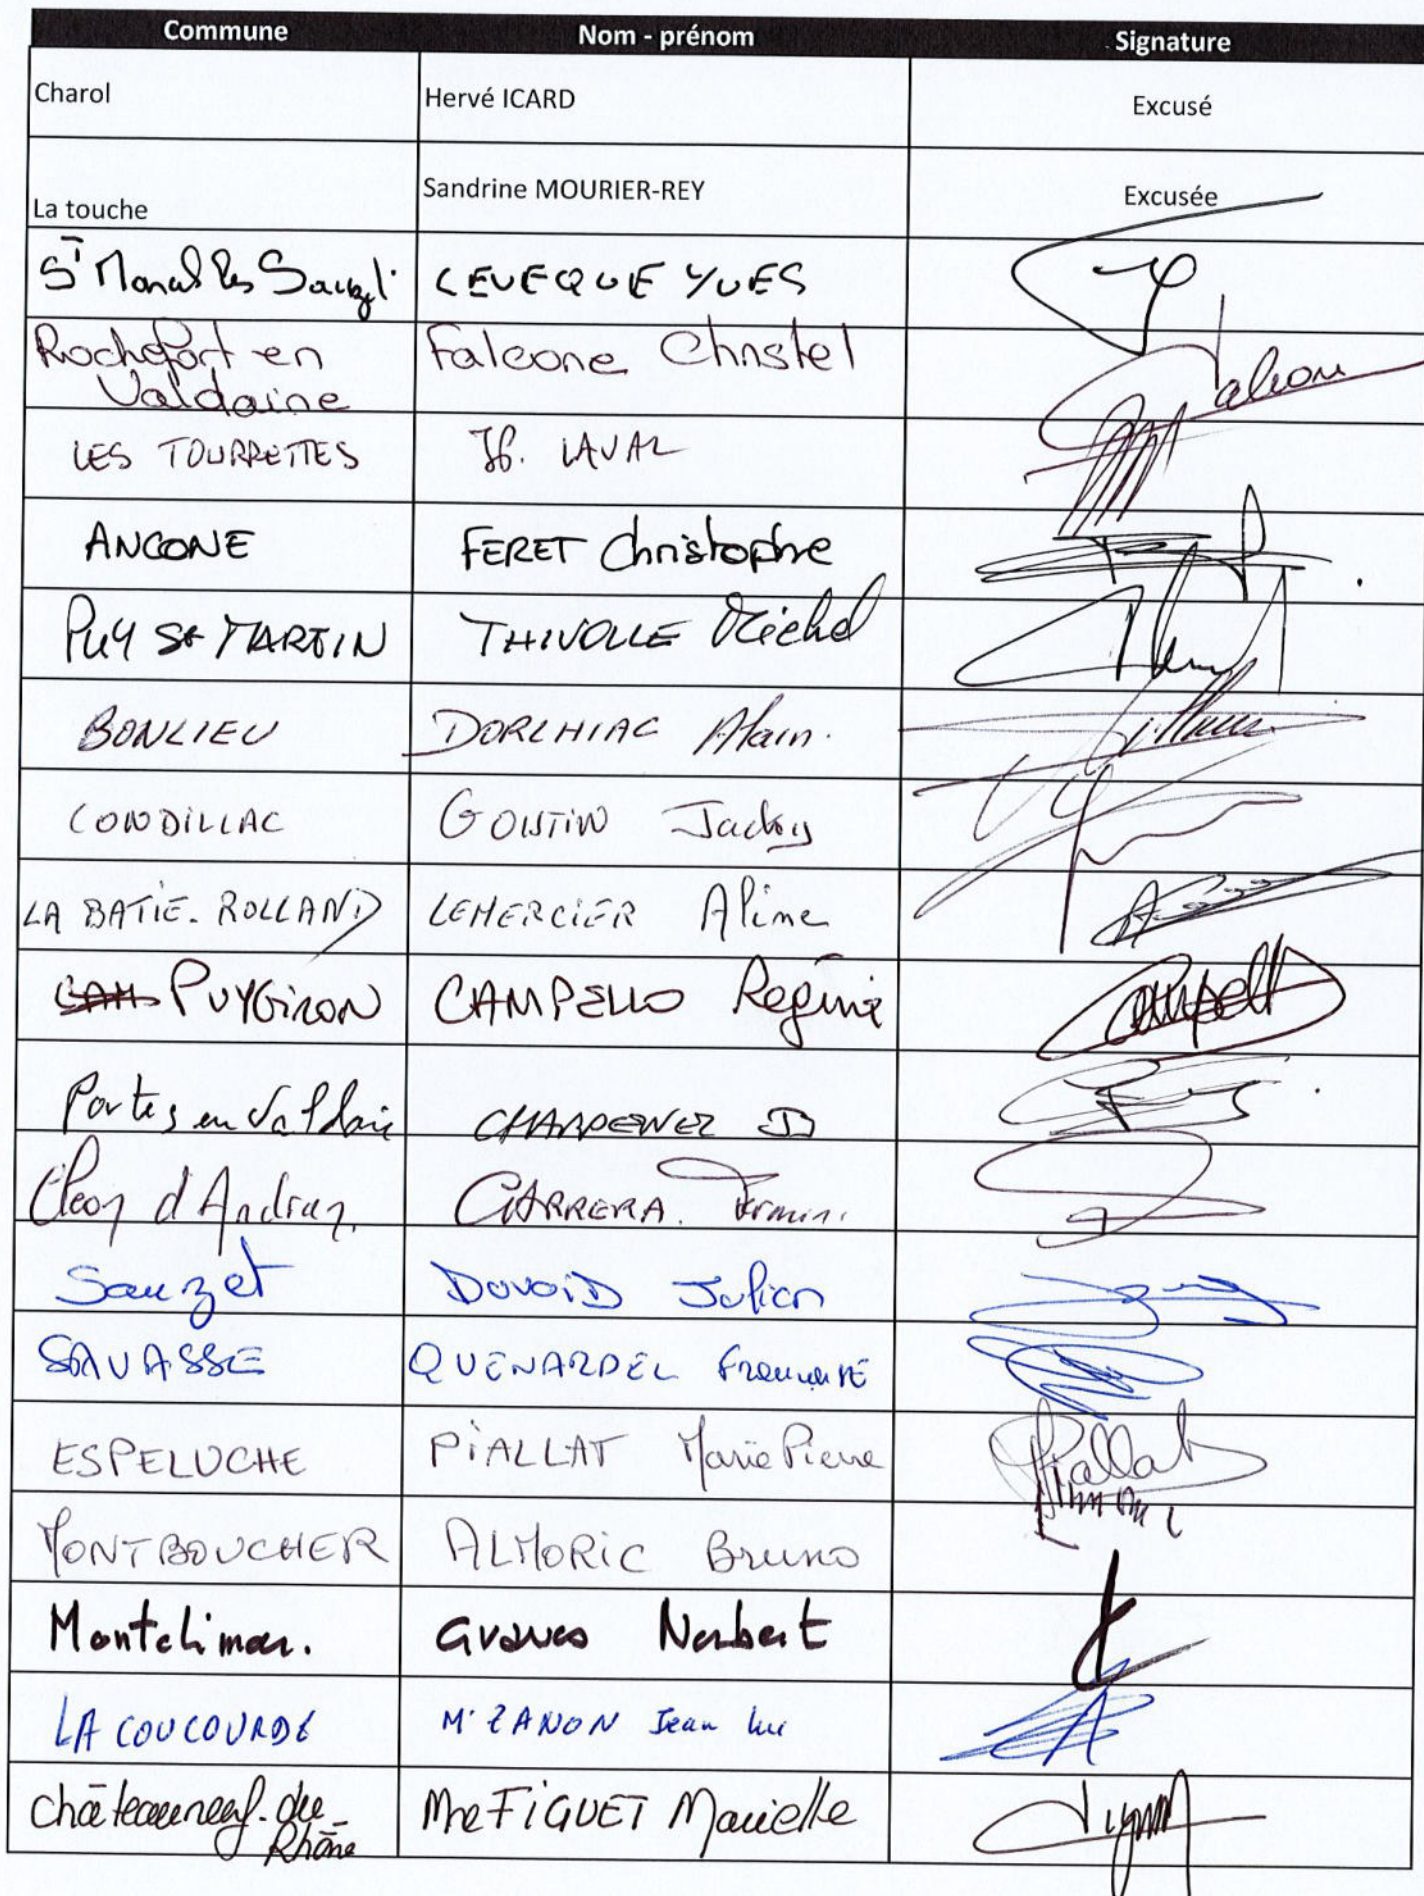 Commune Nom - prénom Signature
Charol Hervé ICARD Excusé
La touche Sandrine MOURIER-REY Excusée
LEVEQUE YVES
Rochefort en Valdaine Falcone Christel Falcone
LES TOURRETTES LAVAL
ANCONE FERET Christophe
PUY St MARTIN THIVOLLE Michel
BONLIEU DORLHIAC Alain
CONDILLAC GOUTIN Jacky
LA BATIE-ROLLAND LEMERCIER Aline
PUYGIRON CAMPELLO Régine Campello
Portes en Valdaine
Cleon d'Andran CARRERA Fermin
Sauzet DUVOID Julien
SAVASSE QUENARDEL
ESPELUCHE PIALLAT Marie Pierre Piallat
MONTBOUCHER ALMORIC Bruno
Montelimar. Norbert
LA COUCOURDE Mr ZANON Jean luc
châteauneuf-du-Rhône Mme FIGUET Marielle